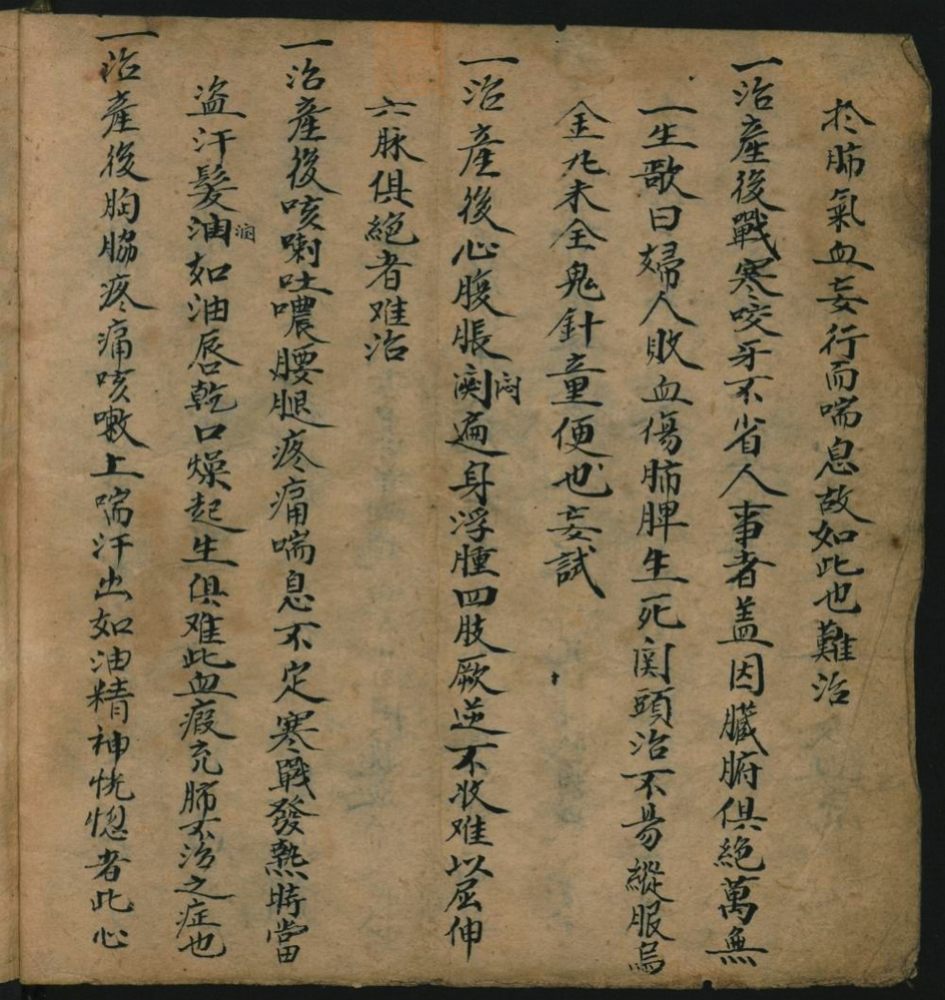 於肺氣血妄行而喘息故如此也難治
一治產後戰寒咬牙不省人事者盖因臟腑俱絕萬無
一生歌曰婦人敗血傷肺脾生死関頭治不昜縱服烏
金九未全鬼針童便也妄試
一治產後心腹脹悶遍身浮腫四肢厥逆不收难以屈伸
六脉俱絕者难治
一治產後咳喇吐噥腰腿疼痛喘息不定寒戰發熱時當
盗汗髮油润如油唇乾口燥起生俱难此血瘕充肺不治之症也
一治產後胸脇疼痛咳嗽上喘汗出如油精神恍惚者此心